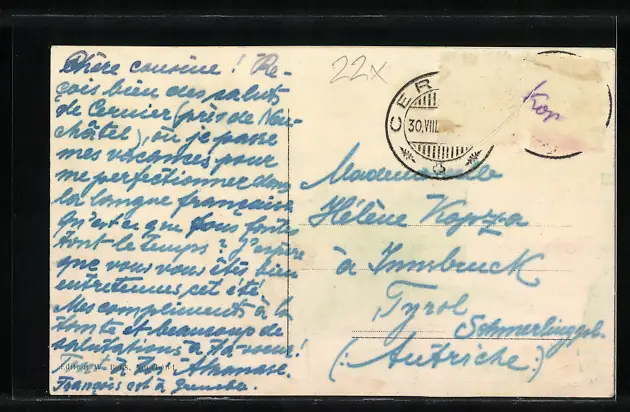 Chère cousine ! Re-
çois bien des saluts
de Cernier (près de Neu-
châtel), où je passe
mes vacances pour
me perfectionner dans
la langue française
qu'est-ce que vous faites
tout le temps ? J'espère
que vous vous êtes bien
entretenues cet été!
Mes compliments à la
tante et beaucoup de
salutations à
Athanase.
François est à Grenoble.
22x
CER
30.VIII
Kop
Mademoiselle
Hélène Kapzza
à Innsbruck
Tyrol
Schmerlinggab.
(: Autriche :)